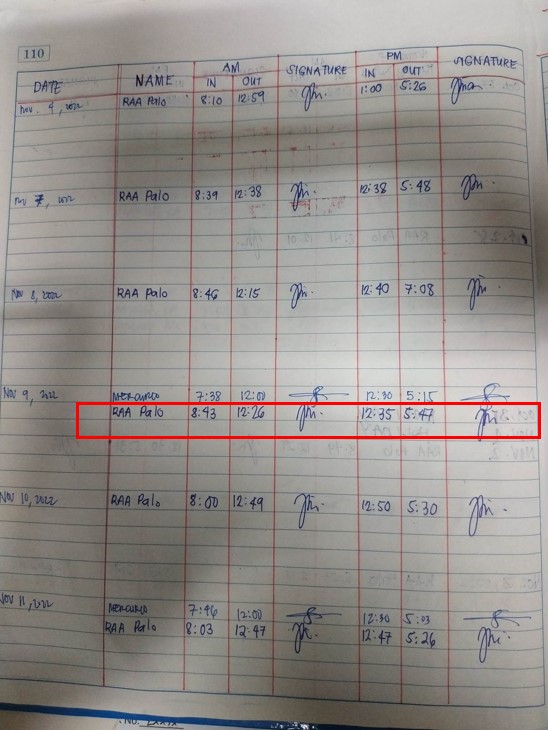 110
AM PM
DATE NAME IN OUT SIGNATURE IN OUT SIGNATURE
Nov. 4, 2022 RAA Palo 8:10 12:59 1:00 5:26
Nov 7, 2022 RAA Palo 8:39 12:38 12:38 5:48
Nov 8, 2022 RAA Palo 8:46 12:15 12:40 7:08
Nov 9, 2022 7:38 12:00 12:30 5:15
RAA Palo 8:43 12:26 12:35 5:47
Nov 10, 2022 RAA Palo 8:00 12:49 12:50 5:30
Nov 11, 2022 7:46 12:00 12:30 5:03
RAA Palo 8:03 12:47 12:47 5:26